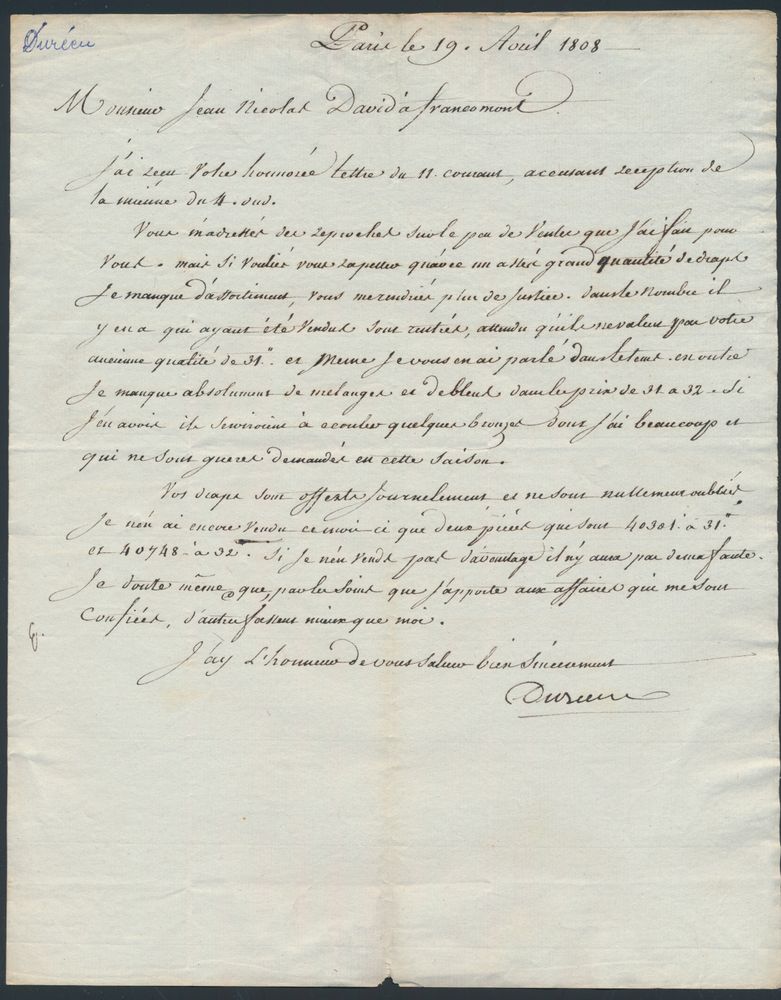 Duréeu
Paris le 19. Avril 1808
Monsieur Jean Nicolas David à francomont
J'ai reçu votre honnorée lettre du 11. courant, accusant reception de
la mienne du 4. dud.
Vous m'adressés des reproches sur le peu de Ventes que j'ai fait pour
vous. mais si vouliés vous rapeller qu'avec un assés grand quantité de draps
Je manque d'assortiment, vous me rendriés plus de Justice. dans le nombre il
y en a qui ayant été Vendus sont rentrés, attendu qu'ils ne valent pas votre
ancienne qualité de 31.'' et même Je vous en ai parlé dans le tems. en outre
Je manque absolument de mélanges et de bleus dans les prix de 31 a 32. Si
J'en avois ils serviroient à ecouler quelques bronzes dont J'ai beaucoup et
qui ne sont gueres demandés en cette saison.
Vos draps sont offerts Journelement et ne sont nullement oubliés
Je n'en ai encore Vendu ce mois ci que deux pièces qui sont 40381. à 31.''
et 40748 - à 32''. Si Je n'en vends pas davantage il n'y aura pas de ma faute.
Je doute même que, par les soins que J'apporte aux affaires qui me sont
Confiées, d'autres fassent mieux que moi.
J'ay L'honneur de vous saluer bien sincerement
Dureeu